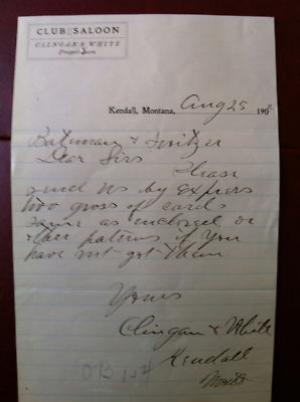 CLUB SALOON
CLINGAN & WHITE
Proprietors
Kendall, Montana, Aug 25 190
Bateman & Switzer
Dear Sirs
Please
send us by express
two gross of cards
same as inclosed or
other patterns if you
have not got them
Yours
Clingan & White
Kendall
Mont